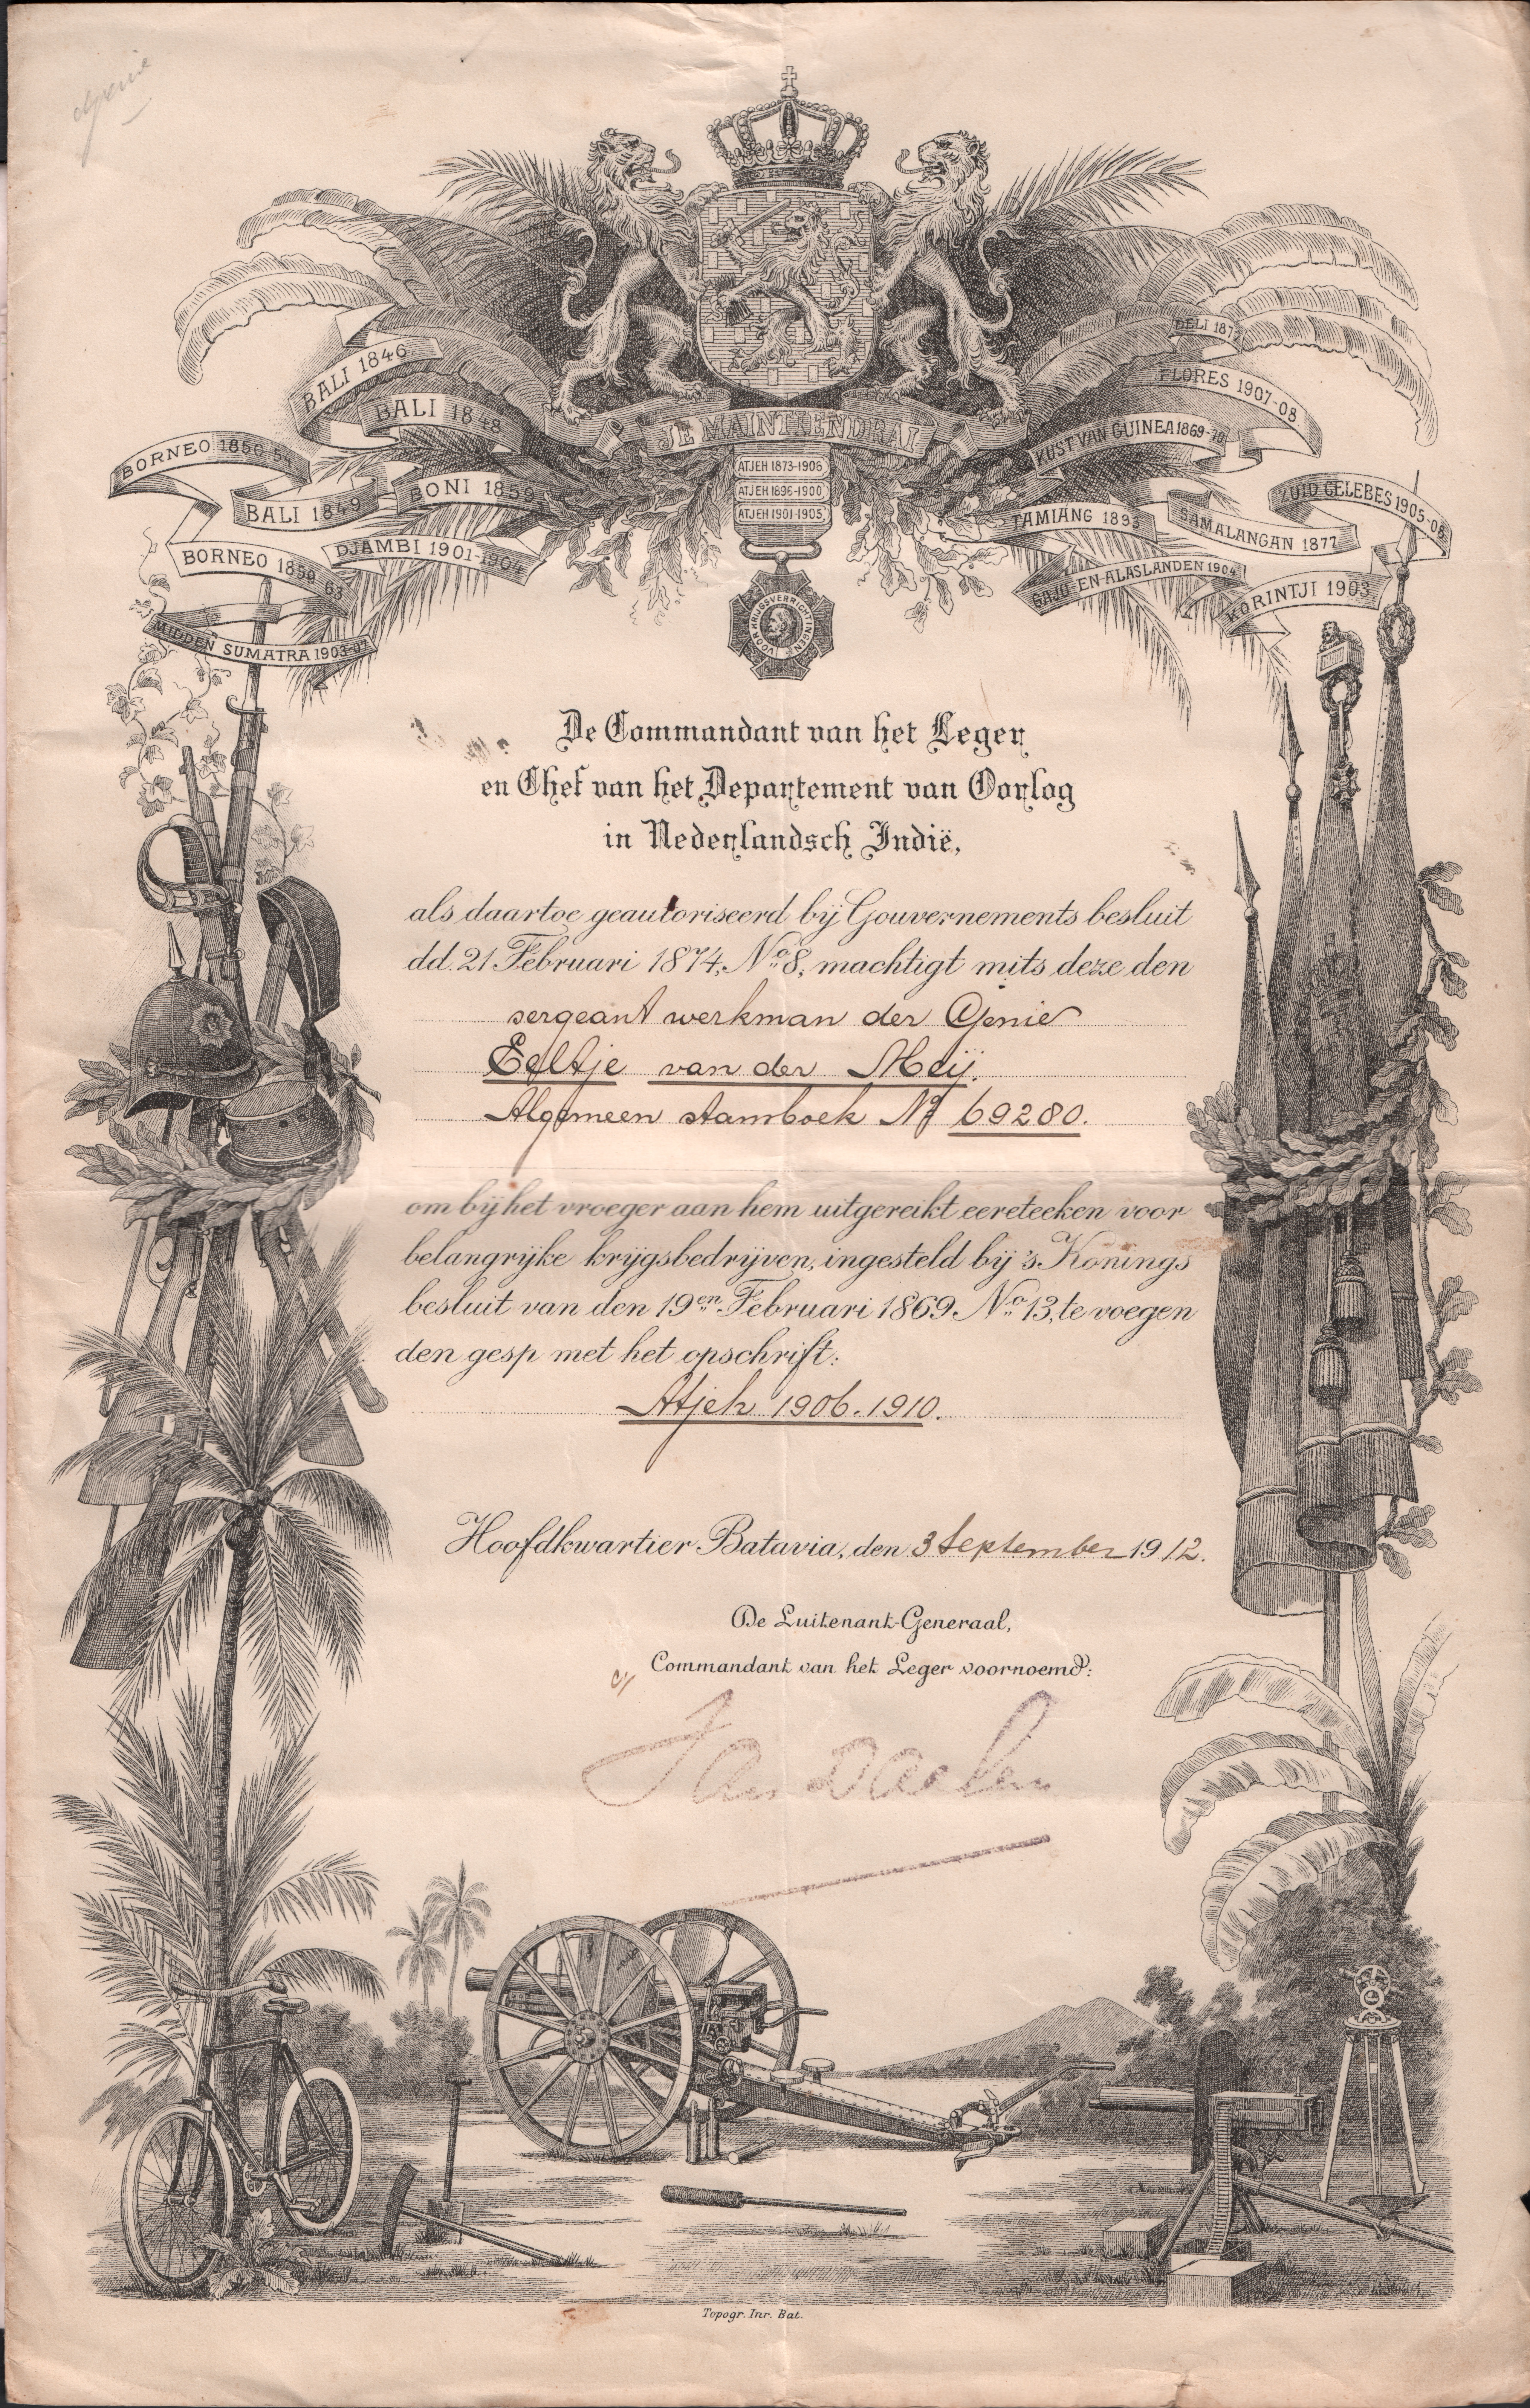 Genie
JE MAINTIENDRAI
BALI 1846
BALI 1848
BORNEO 1850-54
BALI 1849
BONI 1859
BORNEO 1859-63
DJAMBI 1901-1904
MIDDEN SUMATRA 1903-07
ATJEH 1873-1906
ATJEH 1896-1900
ATJEH 1901-1905
VOOR KRIJGSVERRICHTINGEN
DELI 187
FLORES 1907-08
KUST VAN GUINEA 1869-70
ZUID CELEBES 1905-08
TAMIANG 1893
SAMALANGAN 1877
GAJO-EN-ALASLANDEN 1904
KORINTJI 1903
De Commandant van het Leger
en Chef van het Departement van Oorlog
in Nederlandsch Indië,
als daartoe geautoriseerd bij Gouvernements besluit
dd. 21 Februari 1874, No. 8, machtigt mits deze den
sergeant werkman der Genie
Eeltje van der Meij.
Algemeen stamboek No 69280.
om bij het vroeger aan hem uitgereikt eereteeken voor
belangrijke krijgsbedrijven, ingesteld bij 's Konings
besluit van den 19en Februari 1869 No. 13, te voegen
den gesp met het opschrift:
Atjeh 1906-1910.
Hoofdkwartier Batavia, den 3 September 1912.
De Luitenant-Generaal,
Commandant van het Leger voornoemd:
van Daalen
Topogr. Inr. Bat.